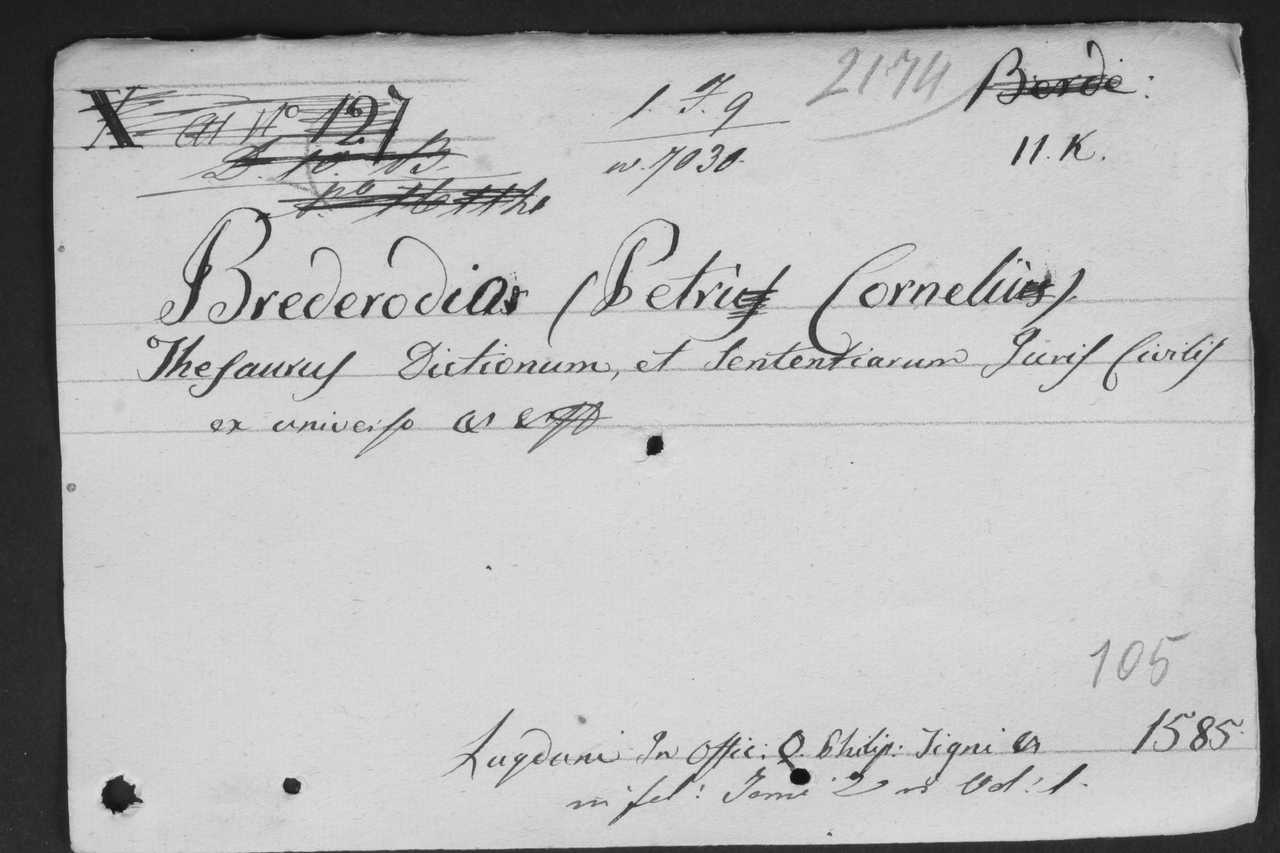 X 127 1. F. 9 2174 Berde:
w. 7030. 11. K.
Brederodius (Petrus Cornelius).
Thesaurus Dictionum, et Sententiarum Juris Civilis
ex universo
105
Lugduni In Offic: Q. Philip: Tigni 1585.
in fol: Tomi 2 Vol: 1.